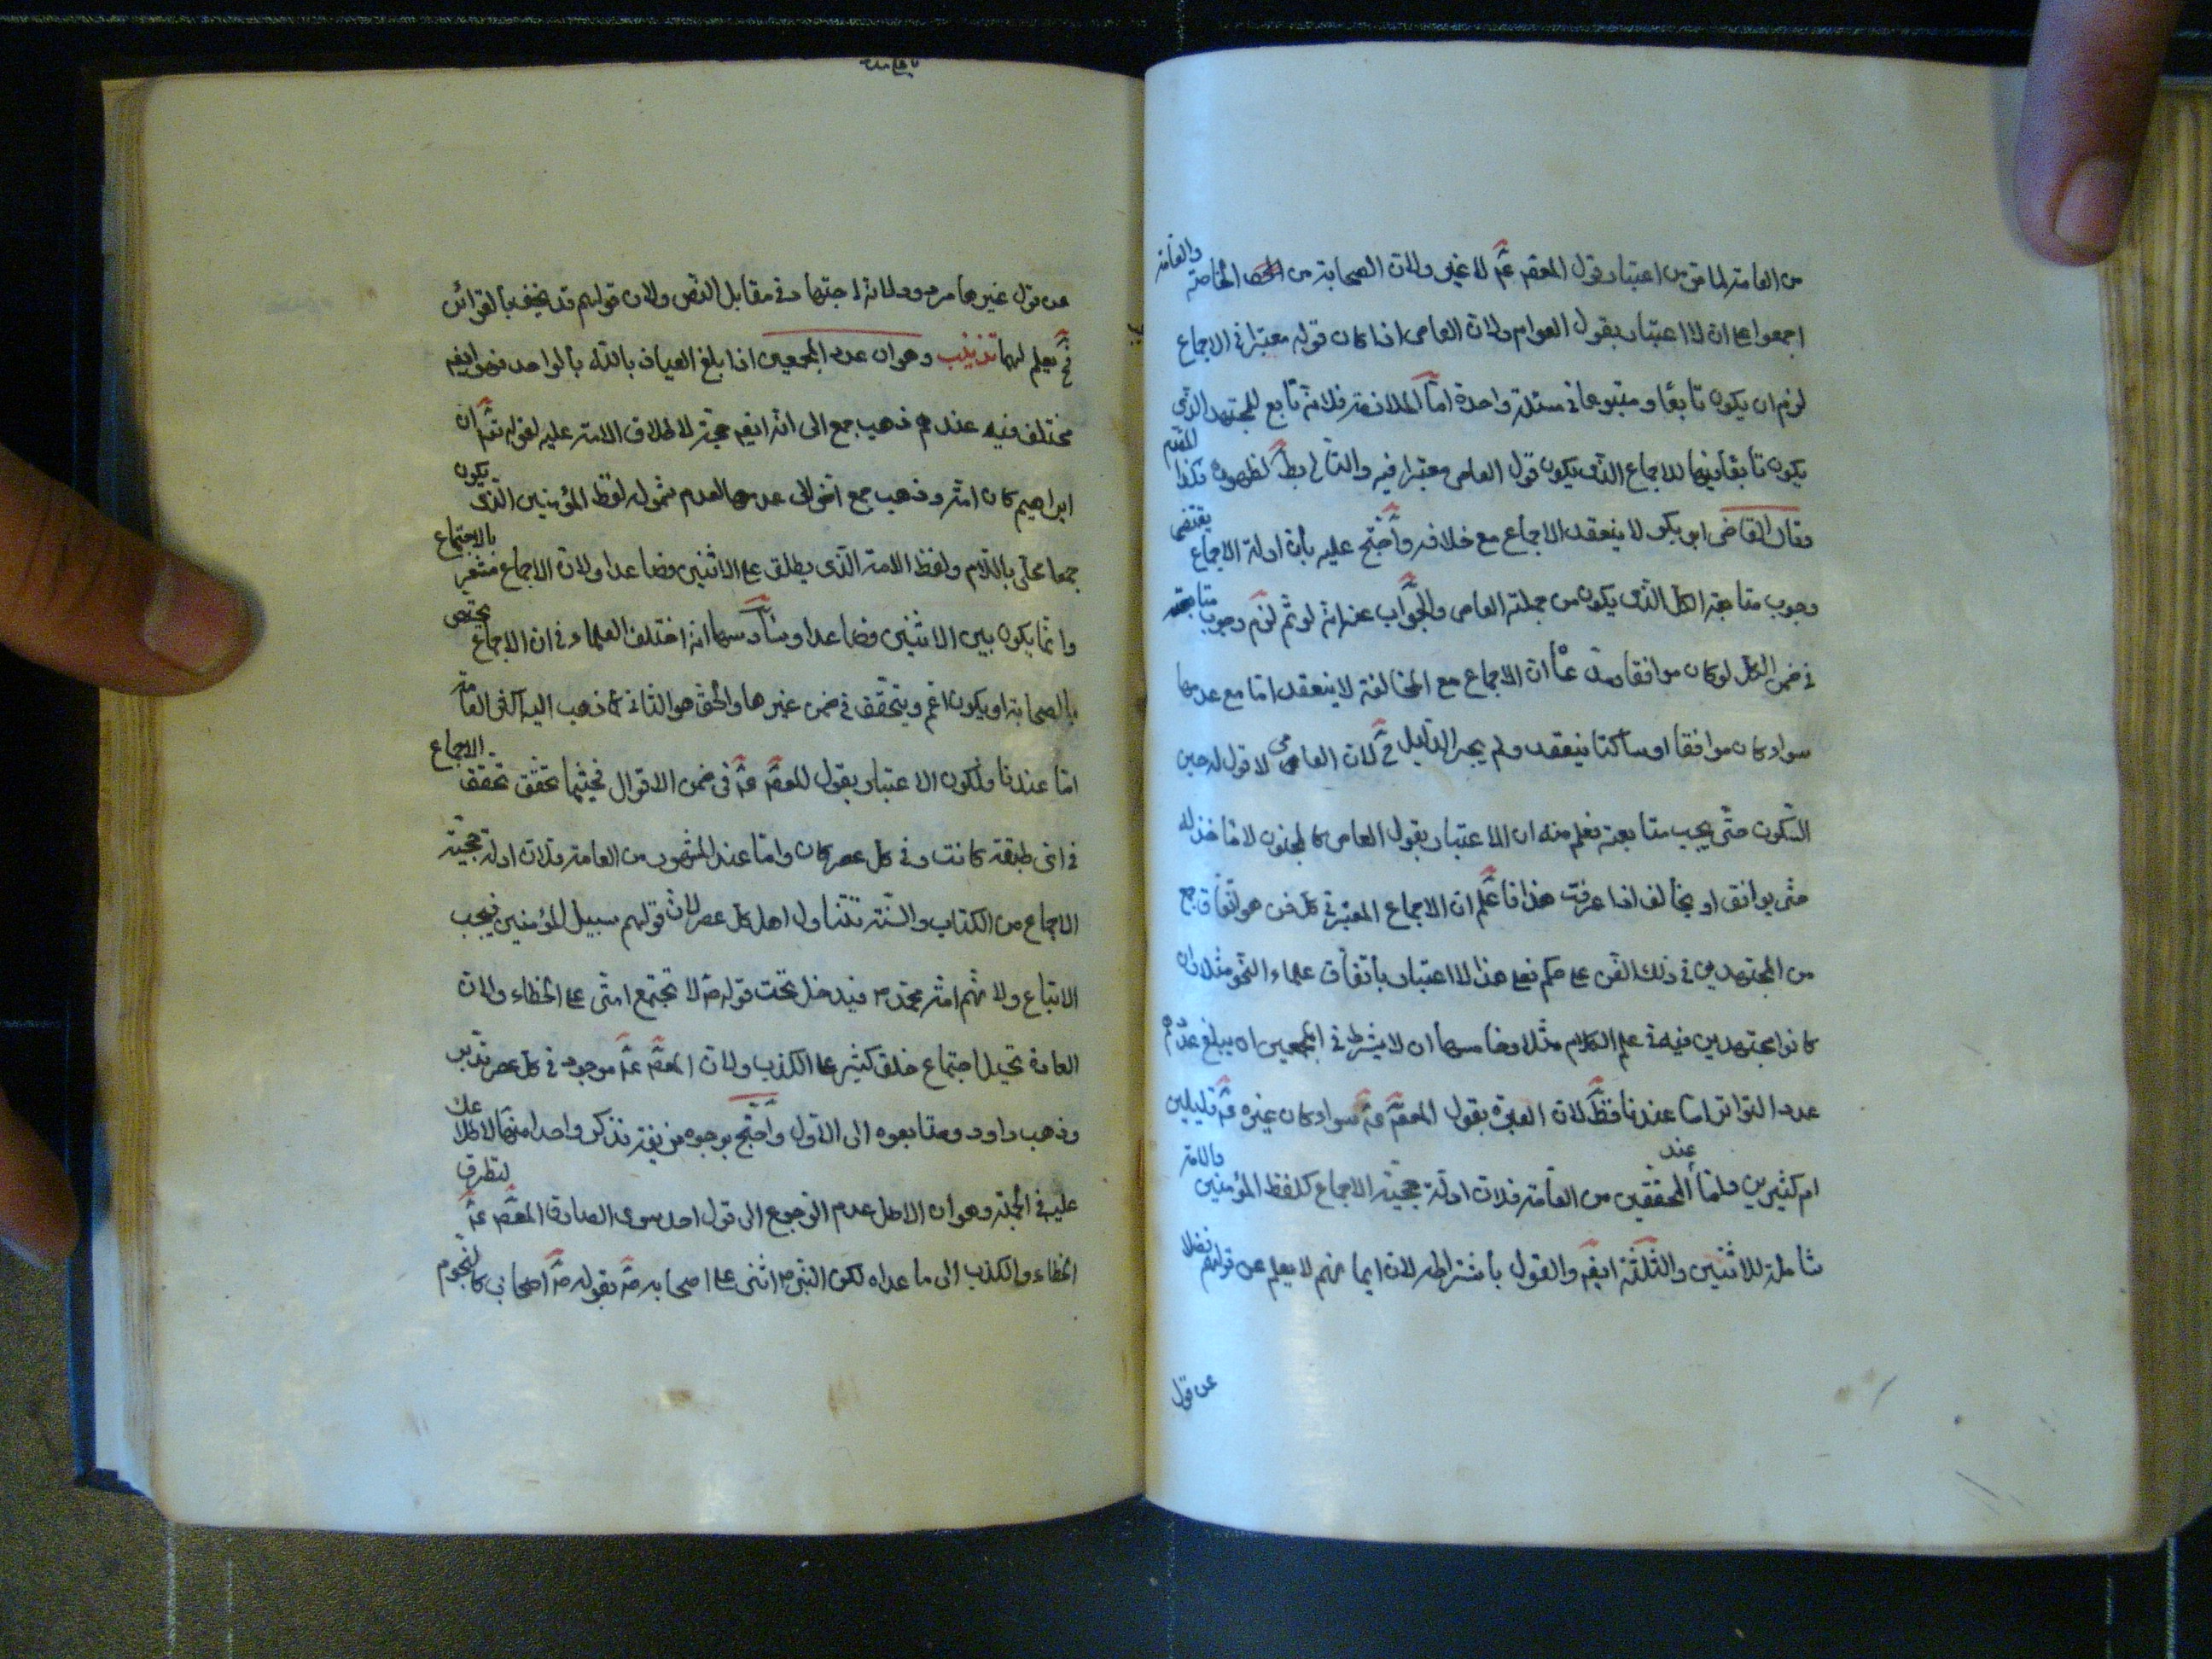 من العامة لما مر من اعتبار قول المعصم عم لا غير ولان الصحابة من الخاصة والعامة
اجمعوا على ان لا اعتبار بقول العوام ولان العامى اذا كان قوله معتبرا فى الاجماع
لزم ان يكون تابعا ومتبوعا فى مسئلة واحدة اما الملازمة فلانه تابع للمجتهد الذى
يكون تابعا فيها للاجماع الذى يكون قول العامى معتبرا فيه والتالى بط لظهوره فكذا المقدم
وقال القاضى ابو بكر لا ينعقد الاجماع مع خلافه واحتج عليه بان ادلة الاجماع يقتضى
وجوب متابعة الكل الذى يكون من جملته العامى والجواب عنه انه لو تم لزم وجوب متابعته
فى ضمن الكل لو كان موافقا ان الاجماع مع المخالفة لا ينعقد اما مع عدمها
سواء كان موافقا او ساكتا فينعقد ولم يجر الدليل ح لان العامى لا قول له حين
السكون حتى يجب متابعته فعلم منه ان الاعتبار بقول العامى كالمجنون لا ماخذ له
حتى يوافق او يخالف اذا عرفت هذا فاعلم ان الاجماع المعتبر فى كل فن هو اتفاق جمع
من المجتهدين فى ذلك الفن على حكم فعلى هذا لا اعتبار باتفاق علماء النحو مثلا وان
كانوا مجتهدين فيه فى علم الكلام مثلا وخامسها ان لا يشترط فى المجمعين ان يبلغ عددهم
عدد التواتر اما عندنا فظ لان العبرة بقول المعصم عم سواء كان غيره عم قليلين
ام كثيرين واما عند المحققين من العامة فلان ادلة حجية الاجماع كلفظ المؤمنين والامة
شاملة للاثنين والثلثة ايضم والقول باشتراطه لان ايمانهم لا يعلم عن قولهم فضلا
عن قول
عن قول غيرها مردود لانه اجتهاد فى مقابل النص ولان قولهم قد يحف بالقرائن
فح يعلم لهما تذنيب وهو ان عدد المجمعين اذا بلغ العياذ بالله بالواحد فهو ايضم
مختلف فيه عندهم فذهب جمع الى انه ايضم حجة لاطلاق الامة عليه لقوله تعم ان
ابراهيم كان امة وذهب جمع اخر الى عدمها لعدم شمول لفظ المؤمنين الذى يكون
جمعا محلى باللام ولفظ الامة الذى يطلق على الاثنين فصاعدا ولان الاجماع مشعر بالاجتماع
وانما يكون بين الاثنين فصاعدا وسادسها انه اختلف العلماء فى ان الاجماع يختص
بالصحابة او يكون اعم ويتحقق فى ضمن غيرها والحق هو الثانى كما ذهب اليه اكثر العامة
اما عندنا فلكون الاعتبار بقول المعصم عم فى ضمن الاقوال فحيثما تحقق تحقق الاجماع
فى اى طبقة كانت وفى كل عصر كان واما عند المشهور من العامة فلان ادلة حجية
الاجماع من الكتاب والسنة تتناول اهل كل عصر لان قولهم سبيل المؤمنين فيجب
الاتباع ولانهم امة محمد ص فيدخل تحت قوله ص لا تجتمع امتى على الخطاء ولان
العادة تحيل اجتماع خلق كثير على الكذب ولان المعصم عم موجود فى كل عصر تدبر
وذهب داود ومتابعوه الى الاول واحتج بوجوه مزيفة نذكر واحدا منها لاطلاعك
عليه فى الجملة وهو ان الاصل عدم الرجوع الى قول احد سوى الصادق المعصم عم لتطرق
الخطاء والكذب الى ما عداه لكن النبى ص اثنى على اصحابه ص بقوله ص اصحابى كالنجوم